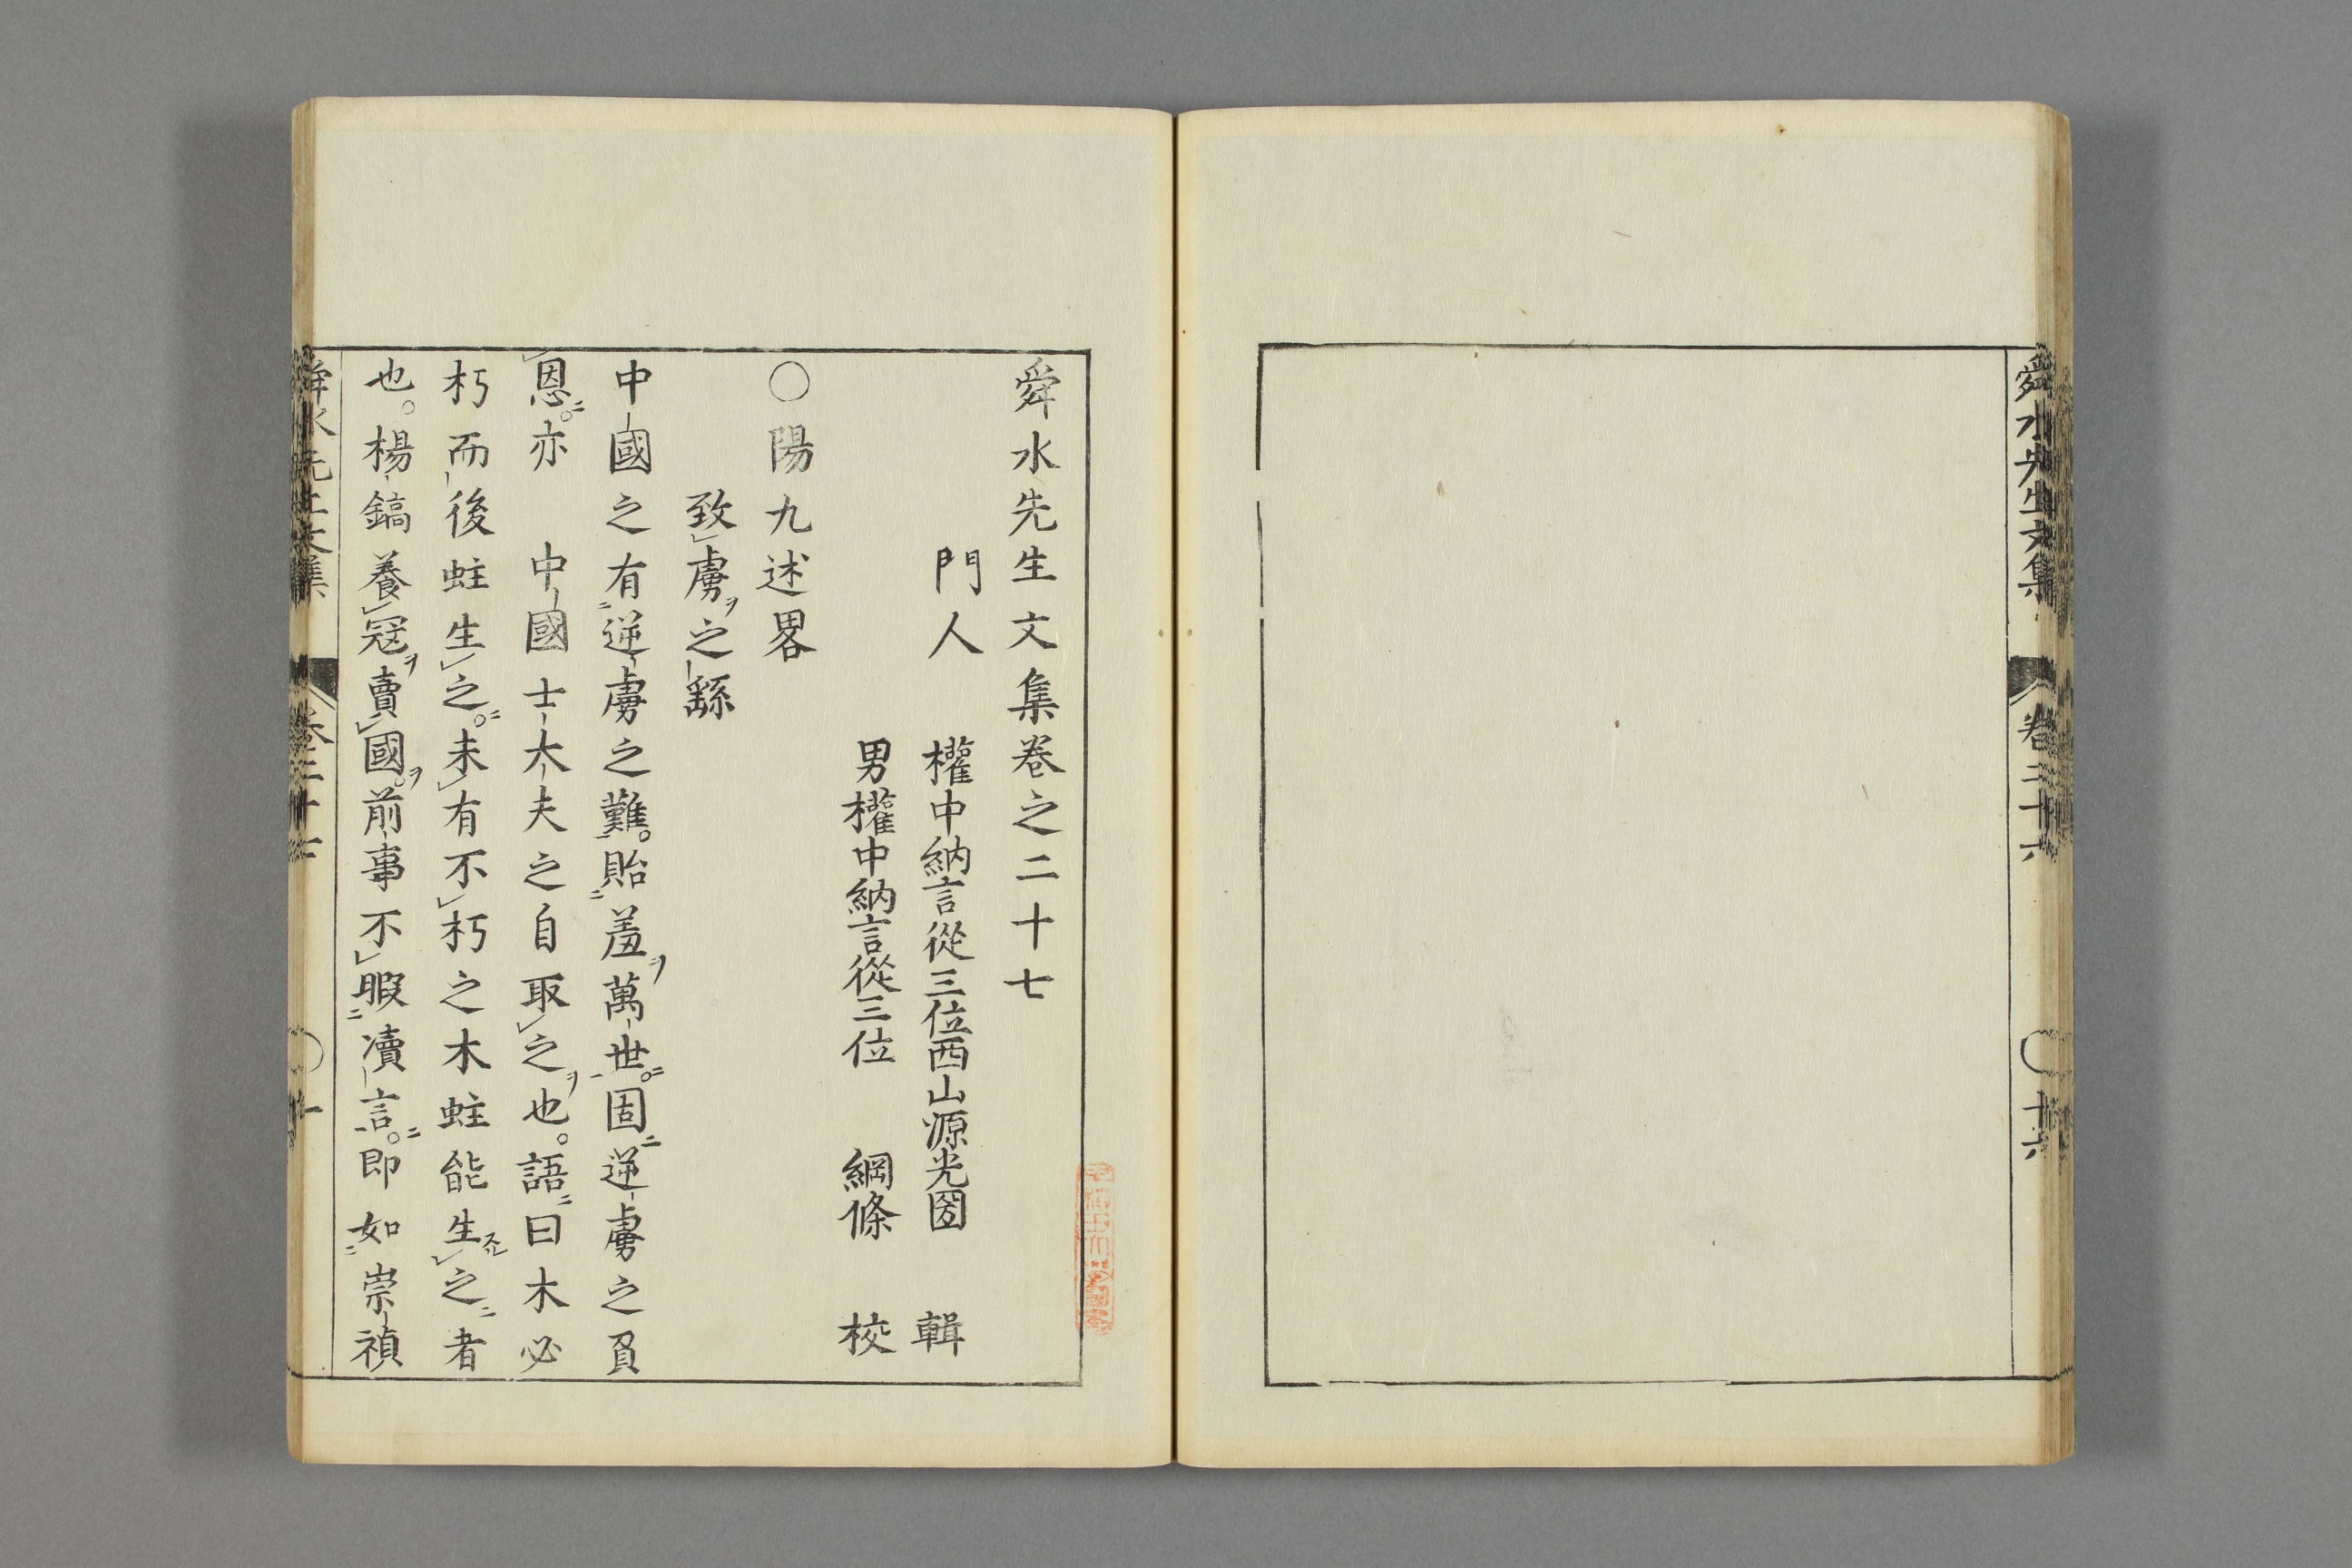 舜水先生文集
卷二十六
十六
舜水先生文集卷之二十七
門人 權中納言從三位西山源光圀 輯
男權中納言從三位 綱條 校
○陽九述畧
致虜之繇
中國之有逆虜之難。貽羞萬世。固逆虜之負
恩。亦 中國士大夫之自取之也。語曰木必
朽而後蛀生之。未有不朽之木蛀能生之者
也。楊鎬養寇賣國。前事不暇瀆言。即如崇禎
舜水先生文集
卷二十七